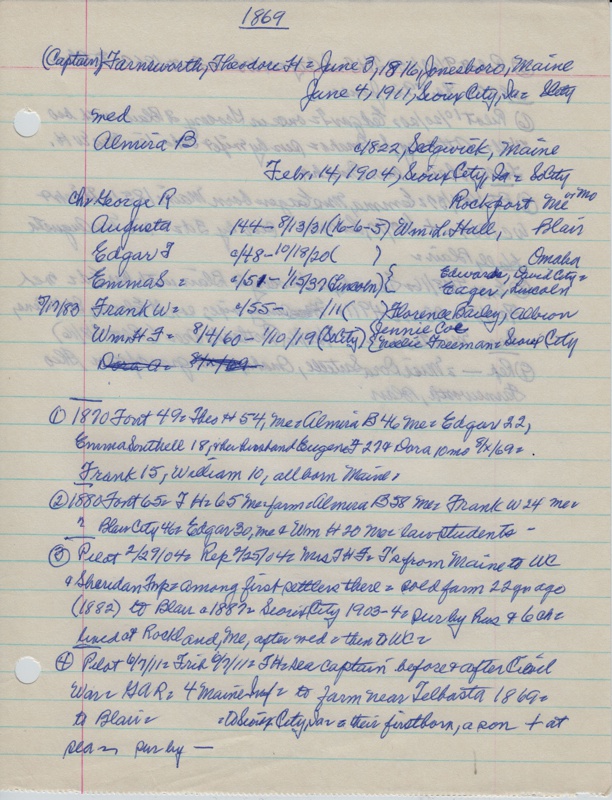 1869
(Captain) Farnsworth, Theodore H = June 3, 1816, Jonesboro, Maine
June 4, 1911, Sioux City, Ia =
med
Almira B c1822, Sedgwick, Maine
Feb. 14, 1904, Sioux City, Ia = SoCity
Ch: George R Rockport Me or Mo
Augusta 144 - 8/13/31 (16-6-5) Wm. L. Hall, Blair
Edgar F c/48 - 10/18/20 ( ) Omaha
Emma S = c/51 - 1/15/37 (Lincoln) { Edwards, David City =
Eager, Lincoln
Frank W = c/55 - /11 ( ) Florence Bailey, Albion
Wm H F = 8/4/60 - 1/10/19 (SoCity) { Jennie Coe
Freeman = Sioux City
Dora A = 8/x/69
① 1870 Font 49 = Theo H 54, Me = Almira B 46 Me = Edgar 22,
Emma Southell 18, & her husband Eugene F 27 & Dora 10 mo 8/x/69 =
Frank 15, William 10, all born Maine,
② 1880 Font 65 = T H = 65 Me = farm = Almira B 58 Me = Frank W 24 me =
? Blair City 46 = Edgar 30, me & Wm H 20 Me = law students -
③ Pilot 2/29/04 = Rep 2/25/04 = Mrs T H F = from Maine to WC
& Sheridan Twp = among first settlers there = sold farm 22 yr ago
(1882) to Blair = 1887 = Sioux City 1903-4 = sur by Hus & 6 ch =
lived at Rockland, Me, after med = then to WC =
④ Pilot 6/7/11 = Trib 6/7/11 = T H = sea captain before & after Civil
War = GAR = 4 Maine Inf = to farm near Telbasta 1869 =
to Blair = = to Sioux City, Ia = their firstborn, a son + at
sea = sur by —